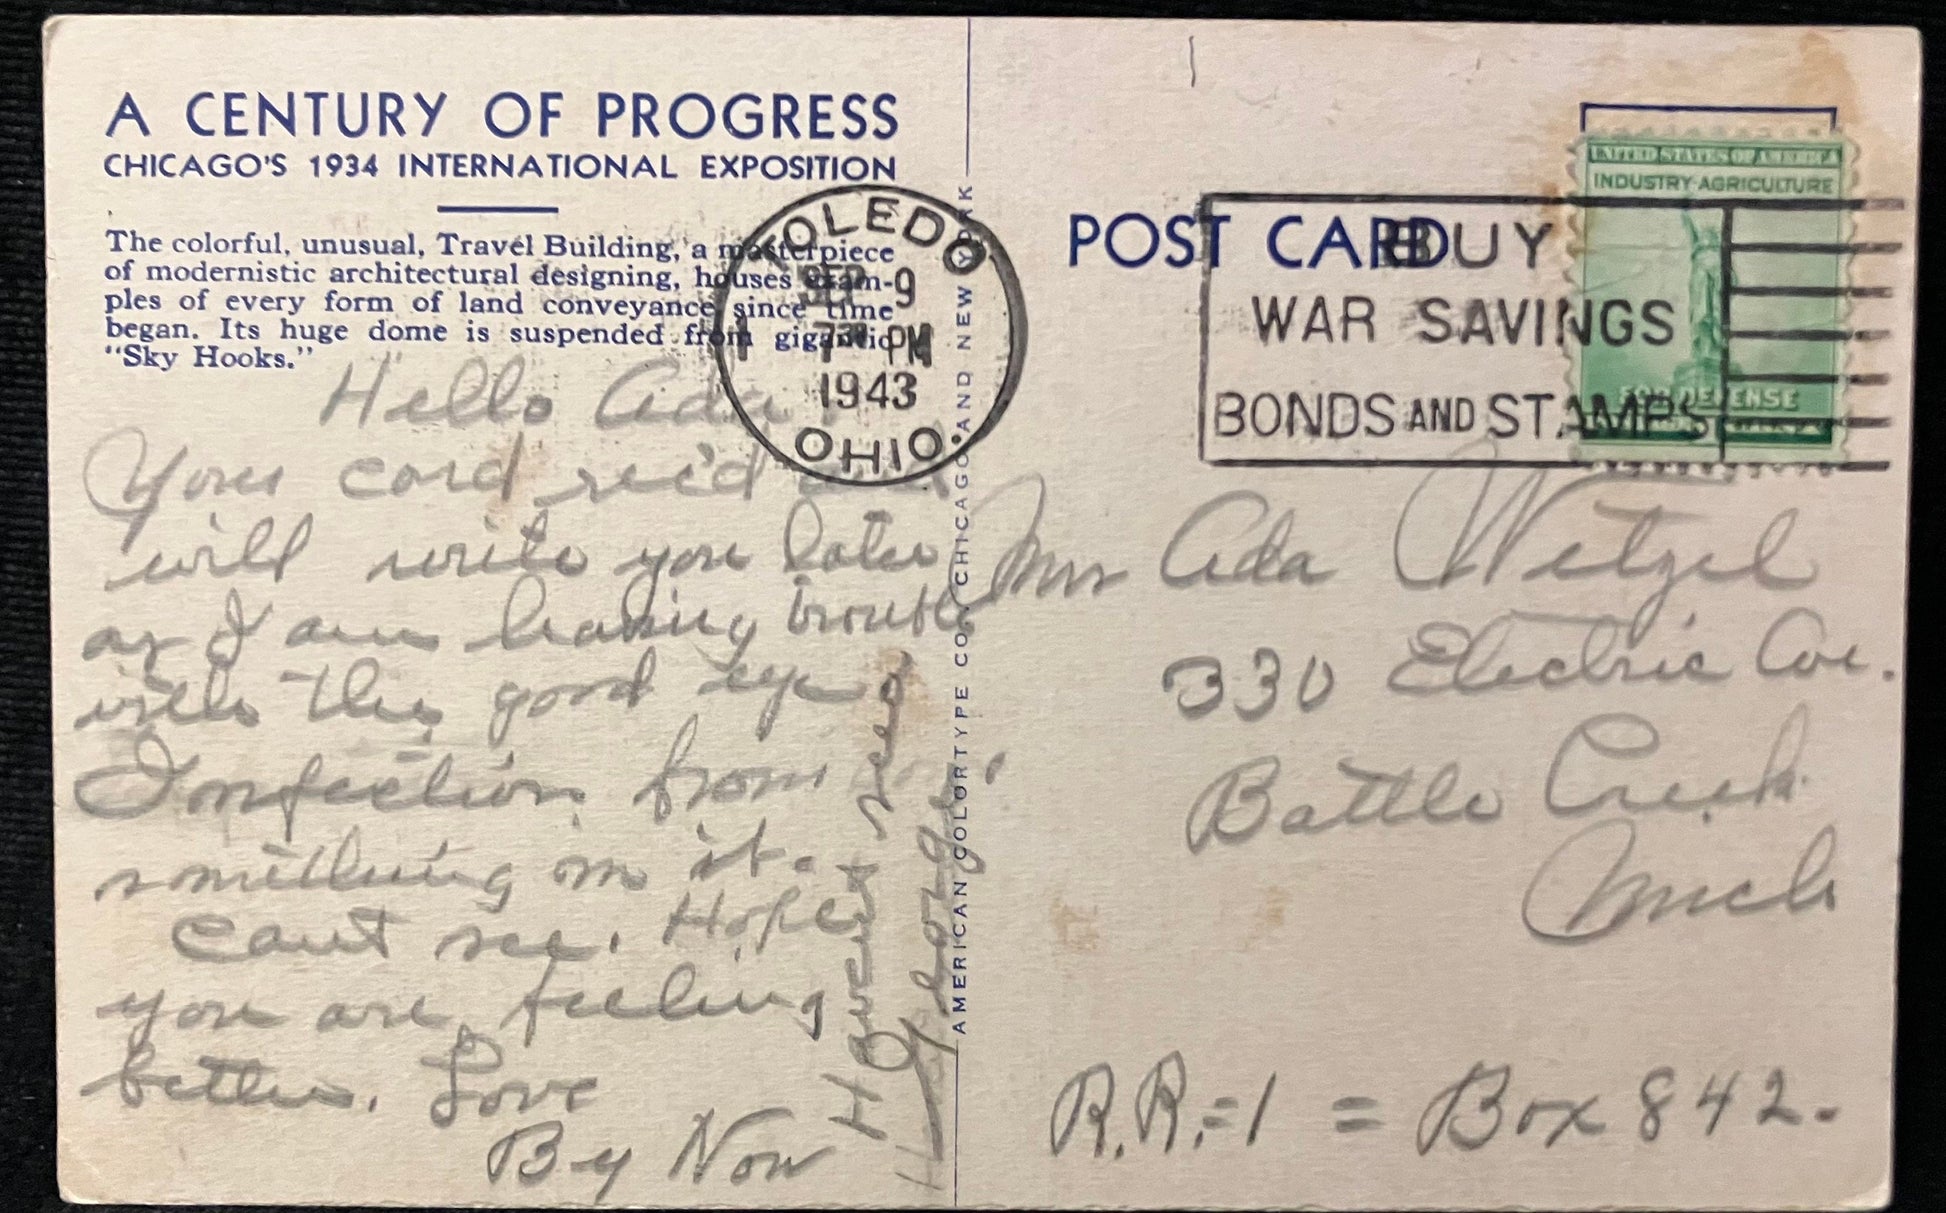 A CENTURY OF PROGRESS
CHICAGO'S 1934 INTERNATIONAL EXPOSITION
The colorful, unusual, Travel Building, a masterpiece
of modernistic architectural designing, houses exam-
ples of every form of land conveyance since time
began. Its huge dome is suspended from gigantic
"Sky Hooks."
Hello Ada
Your card rec'd and
will write you later
as I am having trouble
with the good eye
Infection from
something in it.
cant see. Hope
you are feeling
better. Love
By Now
Havent seen
George
TOLEDO
SEP 9
7 PM
1943
OHIO.
AMERICAN COLORTYPE CO., CHICAGO AND NEW YORK
POST CARD
BUY
WAR SAVINGS
BONDS AND STAMPS
UNITED STATES OF AMERICA
INDUSTRY AGRICULTURE
FOR DEFENSE
Mrs Ada Wetzel
330 Electric Ave.
Battle Creek
Mich
R.R.=1 = Box 842.